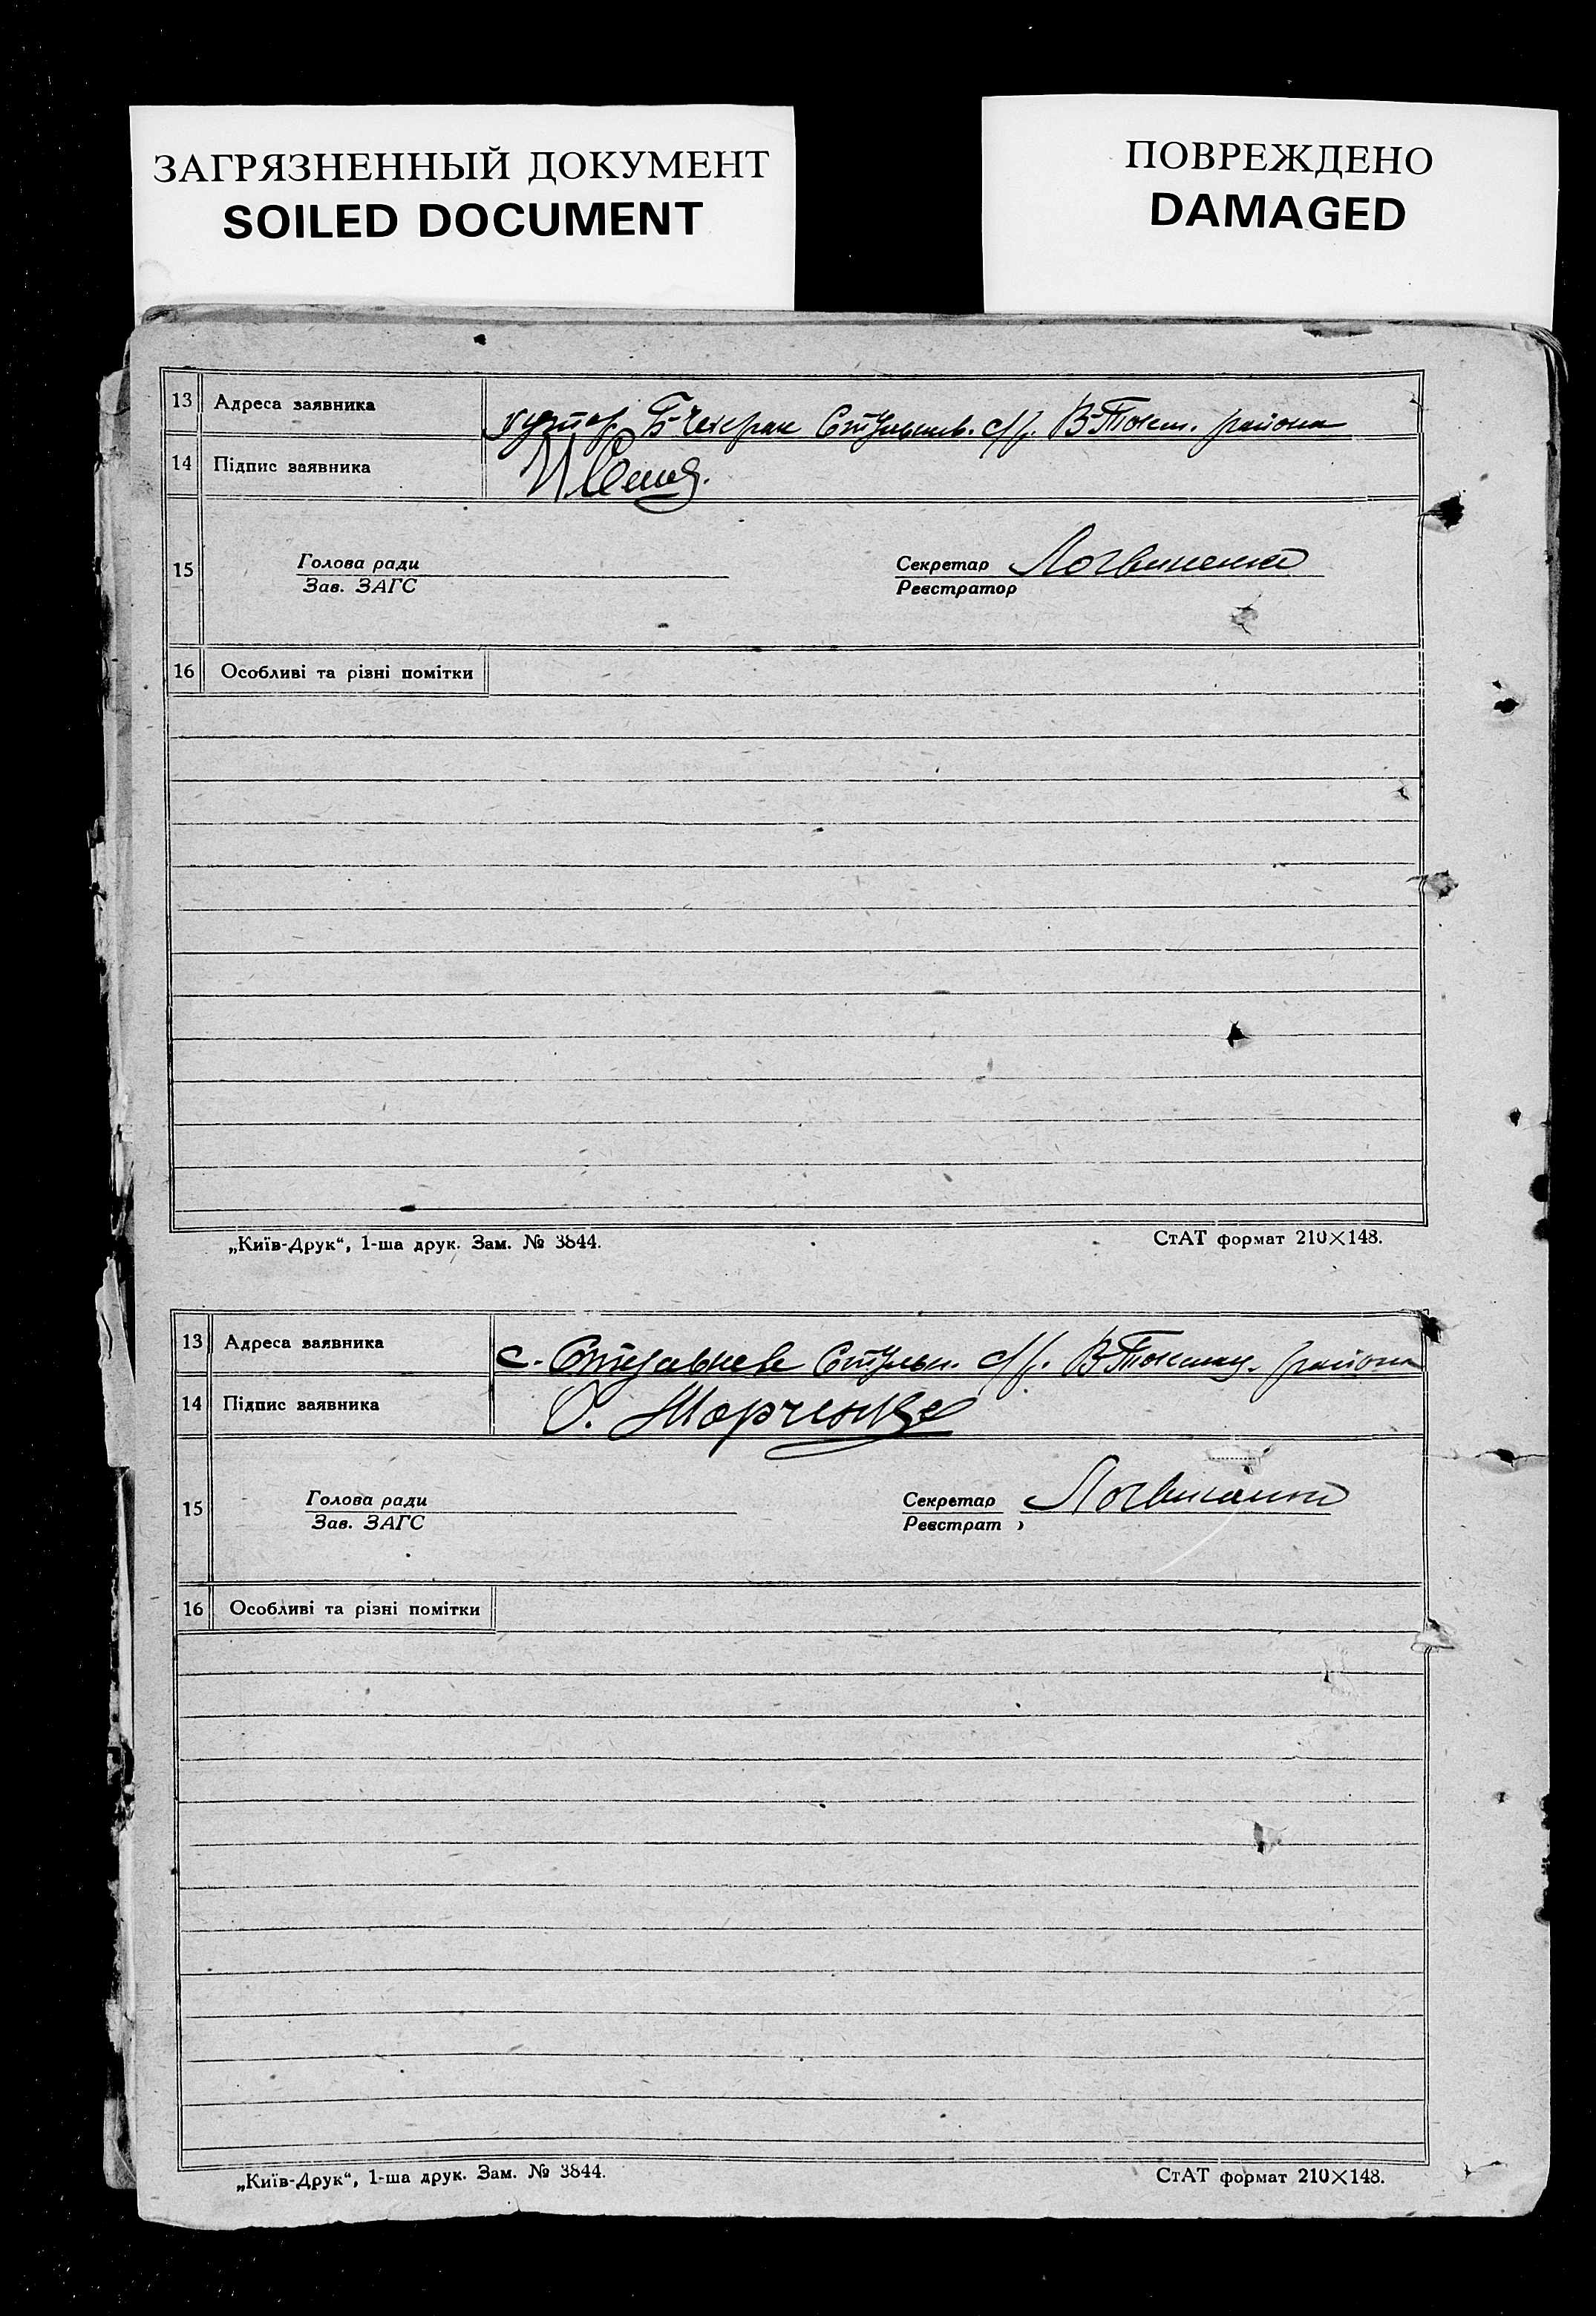 ЗАГРЯЗНЕННЫЙ ДОКУМЕНТ
SOILED DOCUMENT
ПОВРЕЖДЕНО
DAMAGED
13 Адреса заявника хутор Б-Чекрак с/р. В-Токм. района
14 Підпис заявника
15 Голова ради Секретар Логвиненко
Зав. ЗАГС Реєстратор
16 Особливі та різні помітки
„Київ-Друк“, 1-ша друк. Зам. № 3844. СтАТ формат 210×148.
13 Адреса заявника с. с/р. В-Токмац. района
14 Підпис заявника О.
15 Голова ради Секретар Логвиненко
Зав. ЗАГС Реєстрат
16 Особливі та різні помітки
„Київ-Друк“, 1-ша друк. Зам. № 3844. СтАТ формат 210×148.